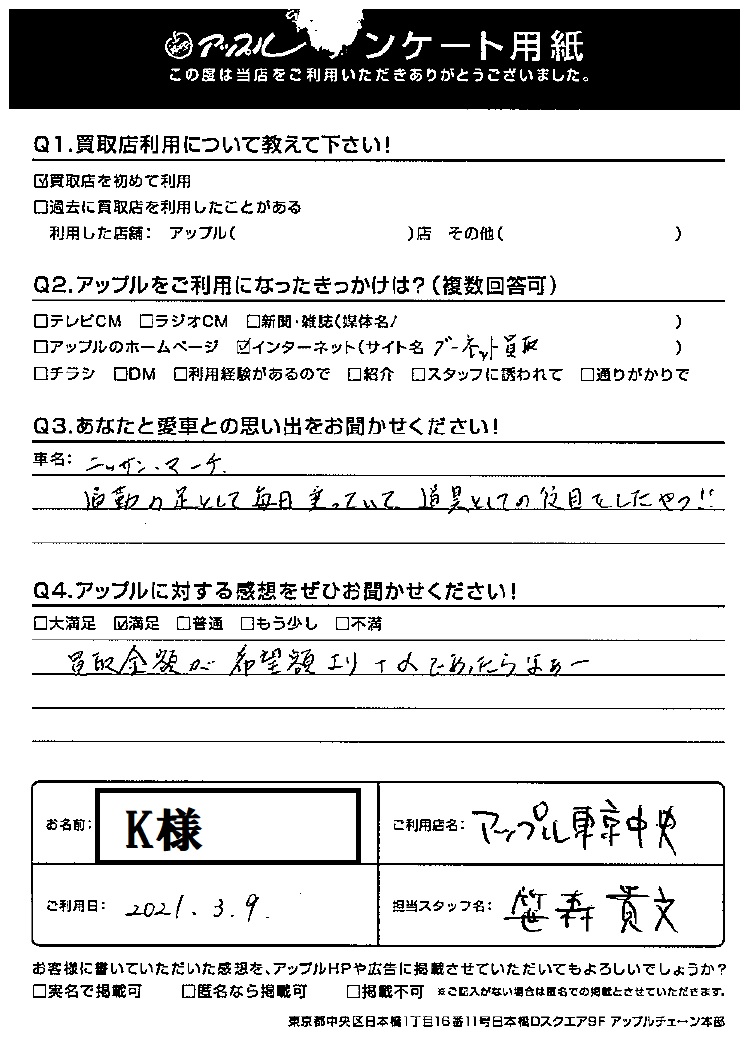 アップル アンケート用紙
この度は当店をご利用いただきありがとうございました。
Q1.買取店利用について教えて下さい!
☑買取店を初めて利用
□過去に買取店を利用したことがある
利用した店舗: アップル( )店 その他( )
Q2.アップルをご利用になったきっかけは?(複数回答可)
□テレビCM □ラジオCM □新聞・雑誌(媒体名/ )
□アップルのホームページ ☑インターネット(サイト名 グーネット買取 )
□チラシ □DM □利用経験があるので □紹介 □スタッフに誘われて □通りがかりで
Q3.あなたと愛車との思い出をお聞かせください!
車名: ニッサン・マーチ
通勤の足として毎日乗っていて、道具としての役目をしたやつ!!
Q4.アップルに対する感想をぜひお聞かせください!
□大満足 ☑満足 □普通 □もう少し □不満
買取金額が希望額より+αであったらなぁー
お名前: K様
ご利用店名: アップル東京中央
ご利用日: 2021.3.9.
担当スタッフ名: 笹森貴文
お客様に書いていただいた感想を、アップルHPや広告に掲載させていただいてもよろしいでしょうか?
□実名で掲載可 □匿名なら掲載可 □掲載不可 ※ご記入がない場合は匿名での掲載とさせていただきます。
東京都中央区日本橋1丁目16番11号日本橋Dスクエア9F アップルチェーン本部